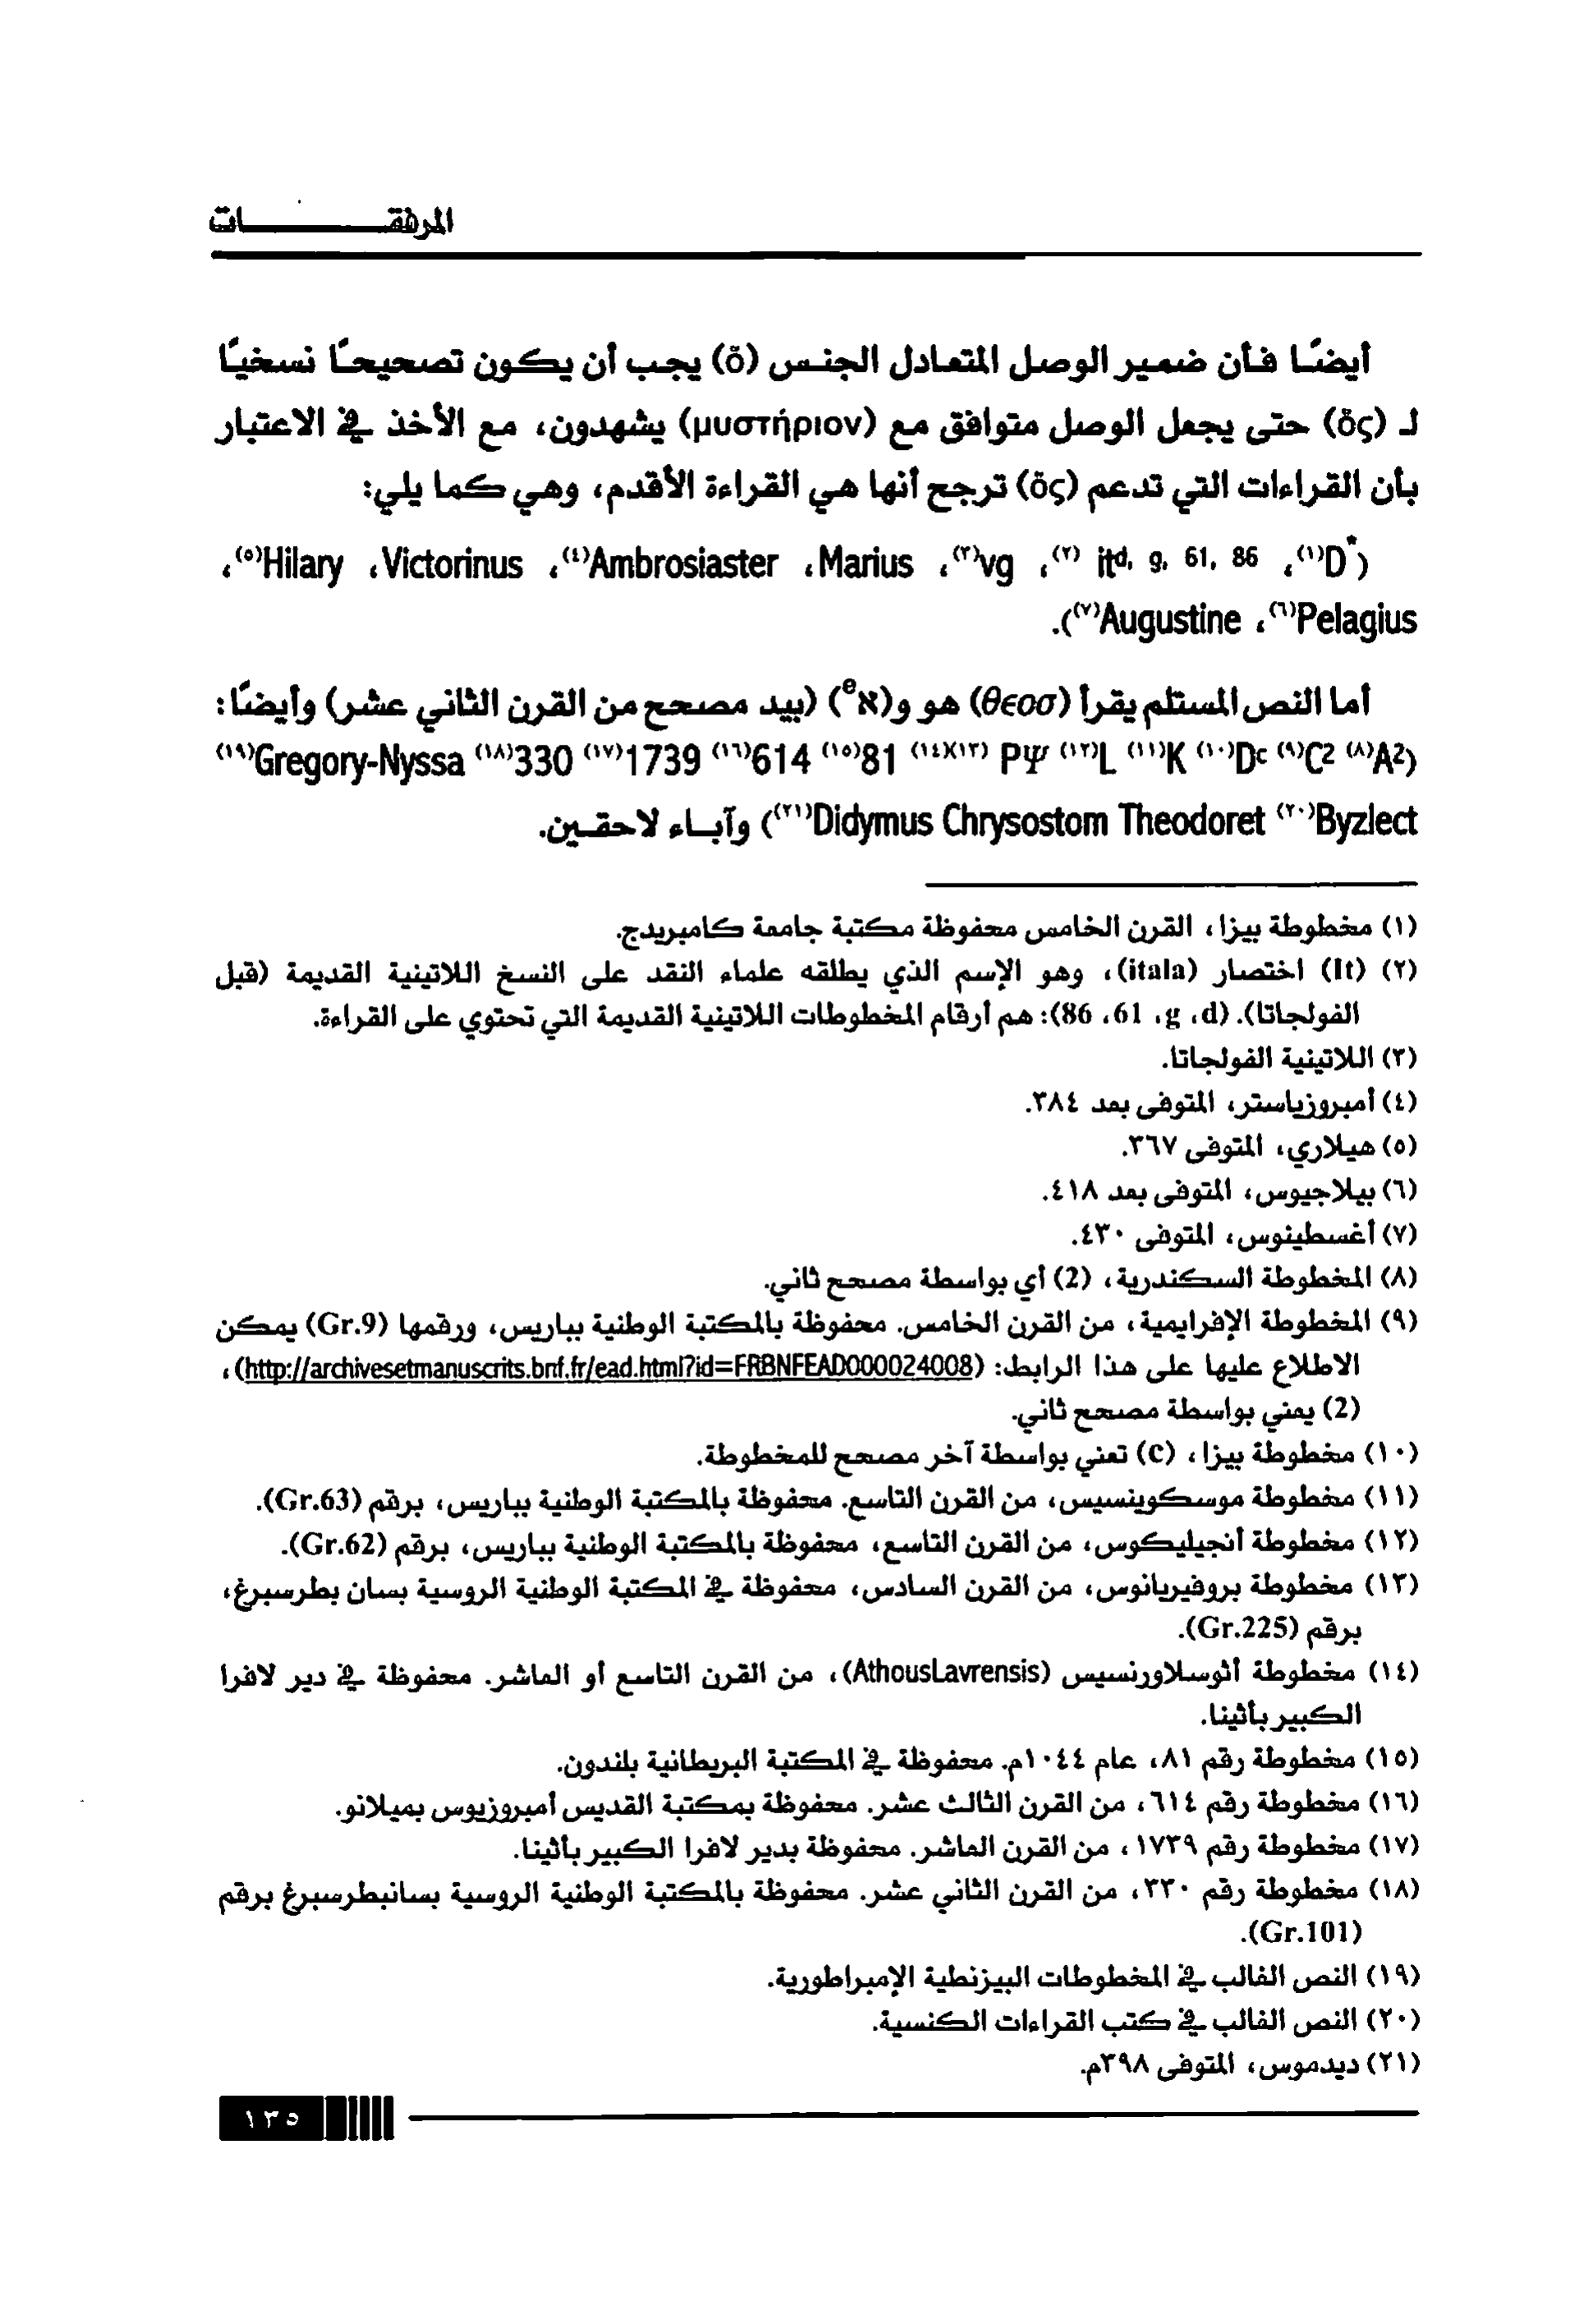 المرفقـــــــات
أيضـًا فـأن ضمير الوصل المتعادل الجنـس (ὅ) يجـب أن يكون تصحيحـًا نسخيـًا
لـ (ὅς) حتى يجعل الوصل متوافق مع (μυστήριον) يشهدون، مع الأخذ في الاعتبار
بأن القراءات التي تدعم (ὅς) ترجح أنها هي القراءة الأقدم، وهي كما يلي:
(D*(١)، it d, g, 61, 86 (٢)، vg(٣)، Marius، Ambrosiaster(٤)، Victorinus، Hilary(٥)،
Pelagius(٦)، Augustine(٧)).
أما النص المستلم يقرأ (θεοσ) هو و(אe) (بيد مصحح من القرن الثاني عشر) وأيضـًا:
(A2(٨) C2(٩) Dc(١٠) K(١١) L(١٢) PΨ (١٣)(١٤) 81(١٥) 614(١٦) 1739(١٧) 330(١٨) Gregory-Nyssa(١٩)
Byzlect(٢٠) Didymus Chrysostom Theodoret(٢١)) وآبـاء لاحقـين.
(١) مخطوطة بيزا، القرن الخامس محفوظة مكتبة جامعة كامبريدج.
(٢) (It) اختصار (itala)، وهو الإسم الذي يطلقه علماء النقد على النسخ اللاتينية القديمة (قبل
الفولجاتا). (d، g، 61، 86): هم أرقام المخطوطات اللاتينية القديمة التي تحتوي على القراءة.
(٣) اللاتينية الفولجاتا.
(٤) أمبروزياستر، المتوفى بعد ٣٨٤.
(٥) هيلاري، المتوفى ٣٦٧.
(٦) بيلاجيوس، المتوفى بعد ٤١٨.
(٧) أغسطينوس، المتوفى ٤٣٠.
(٨) المخطوطة السكندرية، (2) أي بواسطة مصحح ثاني.
(٩) المخطوطة الإفرايمية، من القرن الخامس. محفوظة بالمكتبة الوطنية بباريس، ورقمها (Gr.9) يمكن
الاطلاع عليها على هذا الرابط: (http://archivesetmanuscrits.bnf.fr/ead.html?id=FRBNFEAD000024008)،
(2) يعني بواسطة مصحح ثاني.
(١٠) مخطوطة بيزا، (C) تعني بواسطة آخر مصحح للمخطوطة.
(١١) مخطوطة موسكوينسيس، من القرن التاسع. محفوظة بالمكتبة الوطنية بباريس، برقم (Gr.63).
(١٢) مخطوطة أنجيليكوس، من القرن التاسع، محفوظة بالمكتبة الوطنية بباريس، برقم (Gr.62).
(١٣) مخطوطة بروفيريانوس، من القرن السادس، محفوظة في المكتبة الوطنية الروسية بسان بطرسبرغ،
برقم (Gr.225).
(١٤) مخطوطة أثوسلاورنسيس (AthousLavrensis)، من القرن التاسع أو العاشر. محفوظة في دير لافرا
الكبير بأثينا.
(١٥) مخطوطة رقم ٨١، عام ١٠٤٤م. محفوظة في المكتبة البريطانية بلندون.
(١٦) مخطوطة رقم ٦١٤، من القرن الثالث عشر. محفوظة بمكتبة القديس أمبروزيوس بميلانو.
(١٧) مخطوطة رقم ١٧٣٩، من القرن العاشر. محفوظة بدير لافرا الكبير بأثينا.
(١٨) مخطوطة رقم ٣٣٠، من القرن الثاني عشر. محفوظة بالمكتبة الوطنية الروسية بسانبطرسبرغ برقم
(Gr.101).
(١٩) النص الغالب في المخطوطات البيزنطية الإمبراطورية.
(٢٠) النص الغالب في كتب القراءات الكنسية.
(٢١) ديدموس، المتوفى ٣٩٨م.
١٣٥